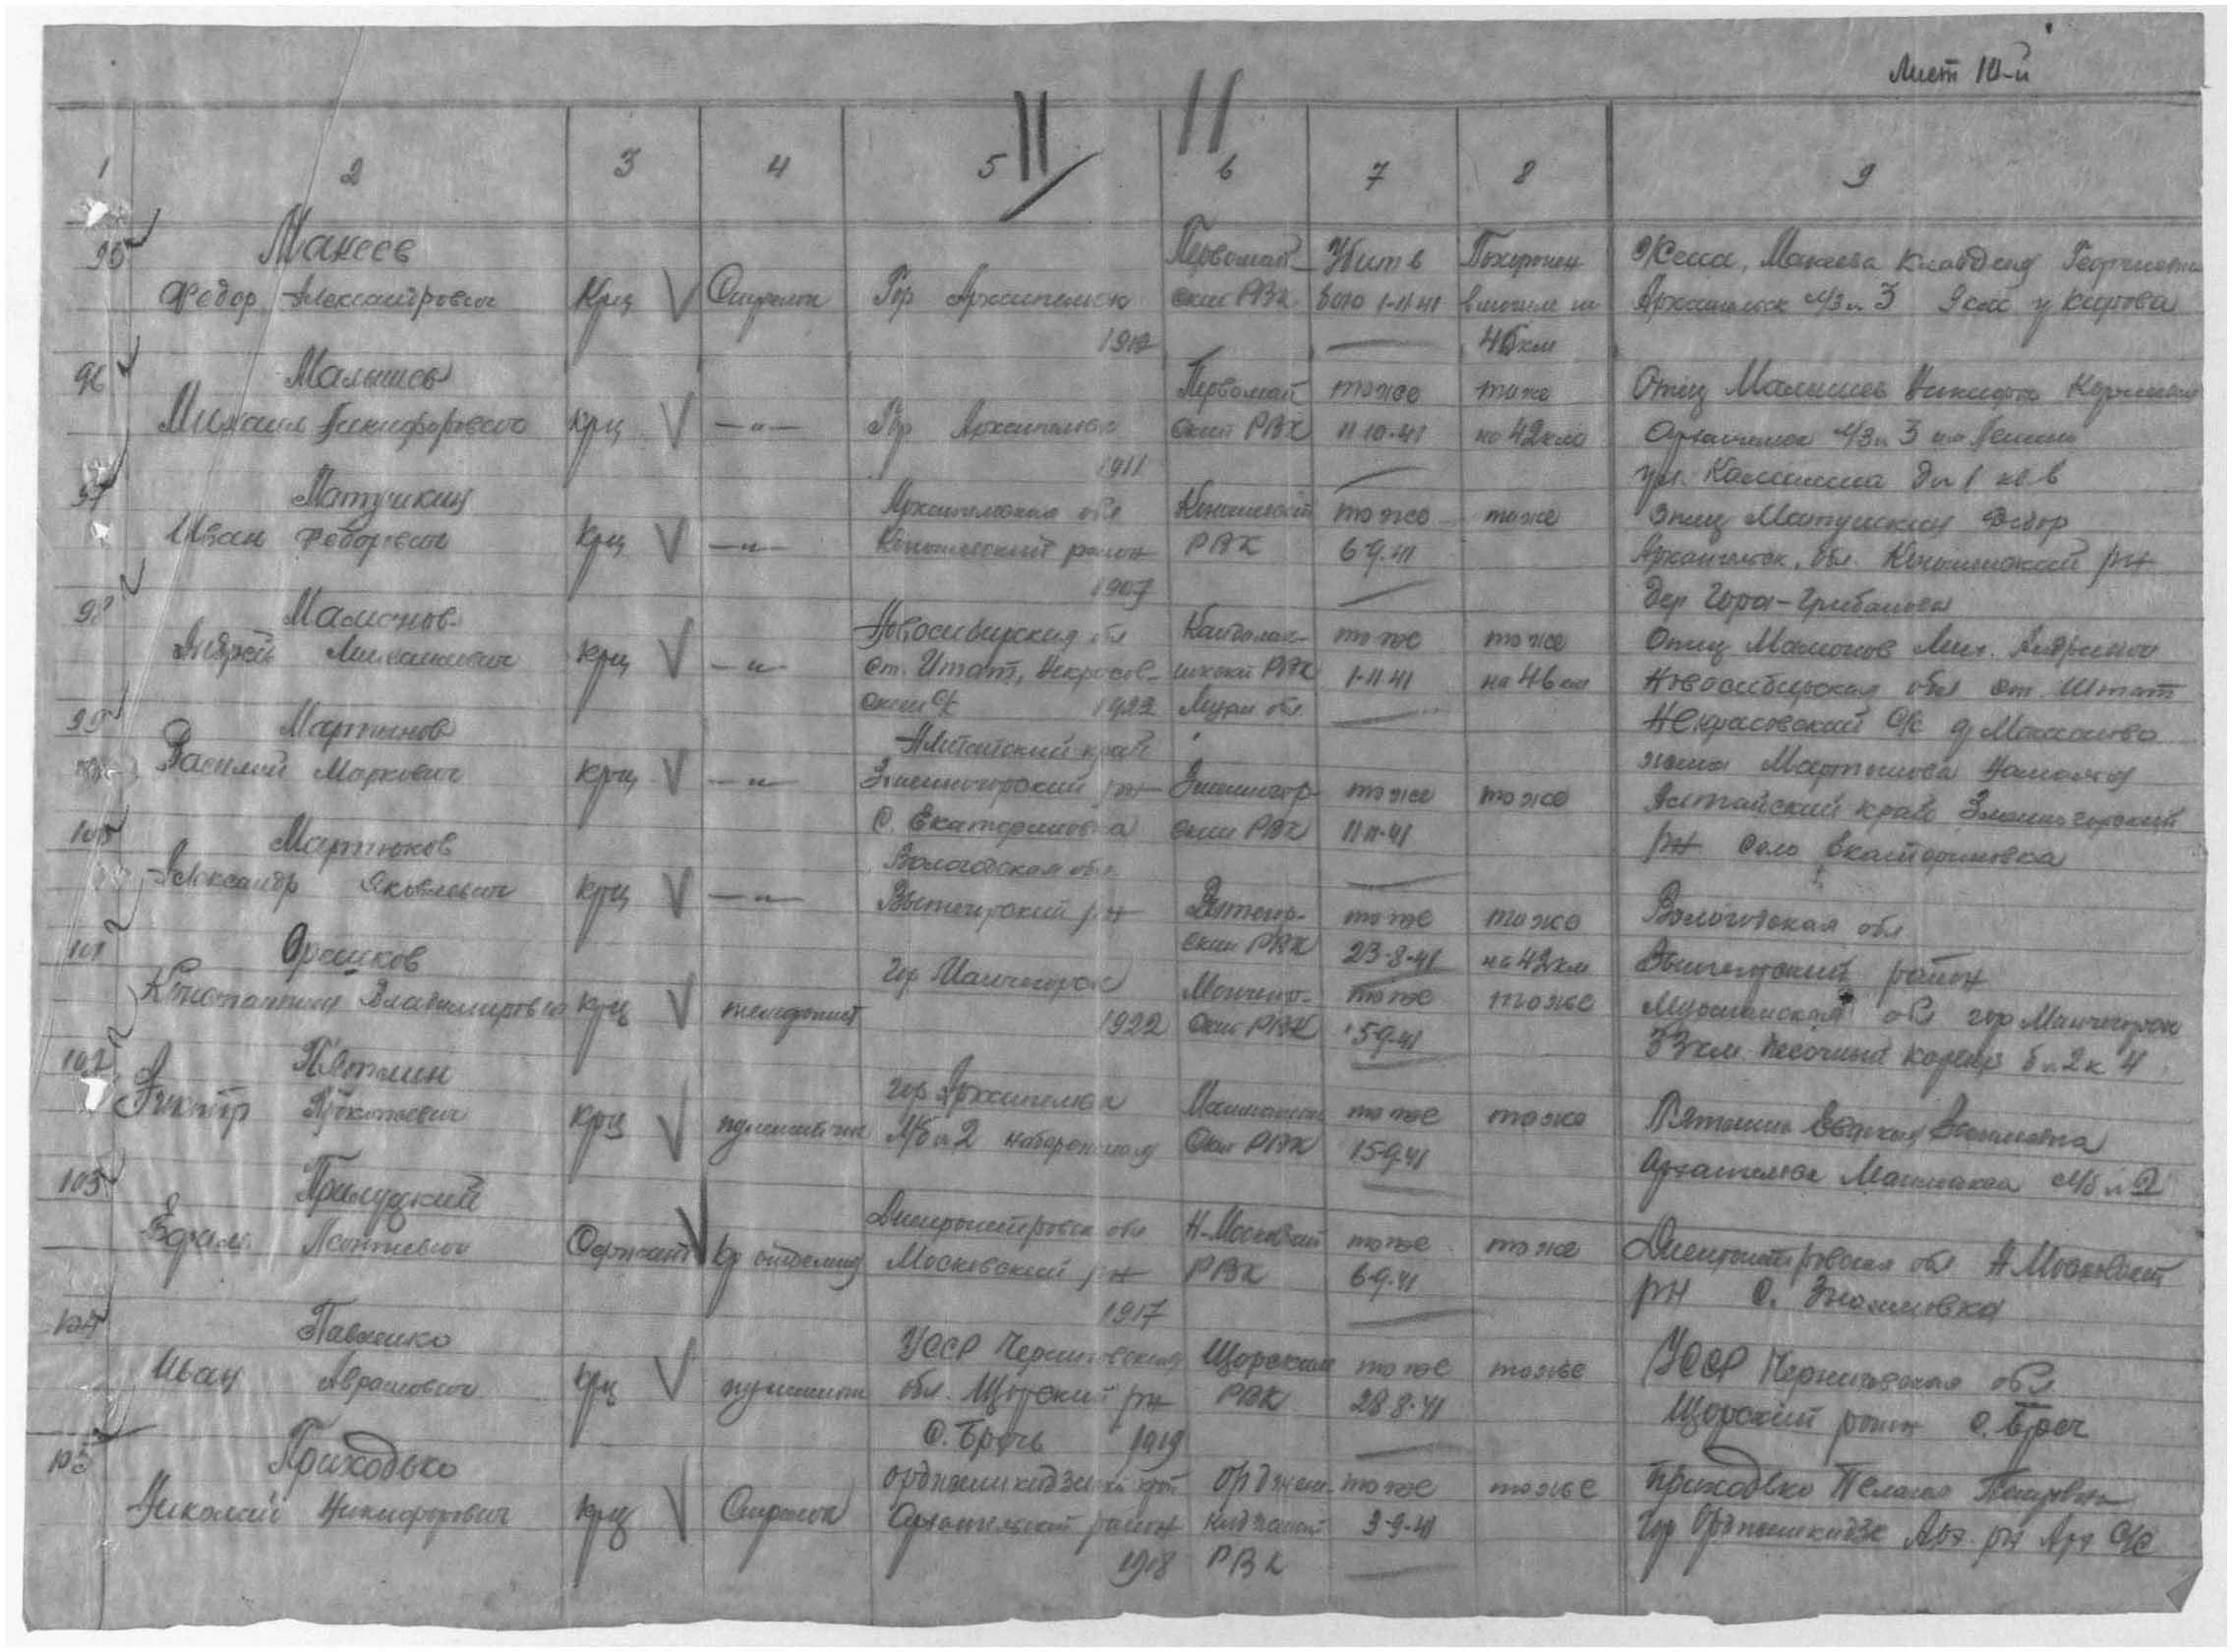 Лист 10-й
11 11
1 2 3 4 5 6 7 8 9
95 Макеев Первомай- Убит в Похоронен Жена, Макеева Клавдия Георгиевна
Федор Александрович Крц Стрелок Гор Архангельск ский РВК бою 1-11-41 в могиле на Архангельск у Кирова
1912 46 км
96 Малышев Первомай тоже тоже Отец Малышев Никифор
Михаил Никифорович Крц —"— Гор Архангельск ский РВК 11-10-41 на 42 км Архангельск 3 им Ленина
1911 ул. Калинина д. 1 кв. 6
97 Матушкин Архангельская обл Коношский тоже тоже Отец Матушкин Федор
Иван Федорович Крц —"— Коношский район РВК 6-9-41 Архангельск. обл. Коношский рн
1907 дер Гора-Грибанова
98 Мамонов Новосибирская обл Кандалак- тоже тоже Отец Мамонов Мих.
Андрей Михайлович Крц —"— ст. Итат, Некрасов- шский РВК 1-11-41 на 46 км Новосибирская обл ст. Итат
ский с/с 1922 Мурм обл. Некрасовский с/с д
99 Мартынов Алтайский край жена Мартынова Наталья
Василий Маркович Крц —"— Змеиногорский рн Змеиногор тоже тоже Алтайский край Змеиногорский
с. Екатериновка ский РВК 11-11-41 рн село Екатериновка
100 Мартюков Вологодская обл.
Александр Яковлевич Крц —"— Вытегорский рн Вытегор- тоже тоже Вологодская обл
ский РВК 23-8-41 на 42 км Вытегорский район
101 Орешков Гор Мончегорск Мончегор- тоже тоже Мурманская обл гор Мончегорск
Константин Владимирович Крц телефонист 1922 ский РВК 15-9-41 33 км песочный карьер б. 2 к 4
102 Пятлин гор Архангельск тоже тоже
Виктор Прокопьевич Крц пулеметчик 2 набережная ский РВК 15-9-41 Архангельск Маймакса 2
103 Прилуцкий Днепропетровск обл Н-Московский тоже тоже Днепропетровская обл Н Московский
Ефим Леонтьевич Сержант ком отделения Московский рн РВК 6-9-41 рн с. Знаменовка
1917
104 Павленко УССР Черниговская Щорский тоже тоже УССР Черниговская обл
Иван Абрамович Крц пулеметч обл. Щорский рн РВК 28-8-41 Щорский район с. Бреч
с. Бречь 1919
105 Приходько Орджоникидзенский край Орджони- тоже тоже Приходько Пелагея
Николай Никифорович Крц Стрелок район кидзенский 3-9-41 Гор Орджоникидзе рн с/с
1918 РВК